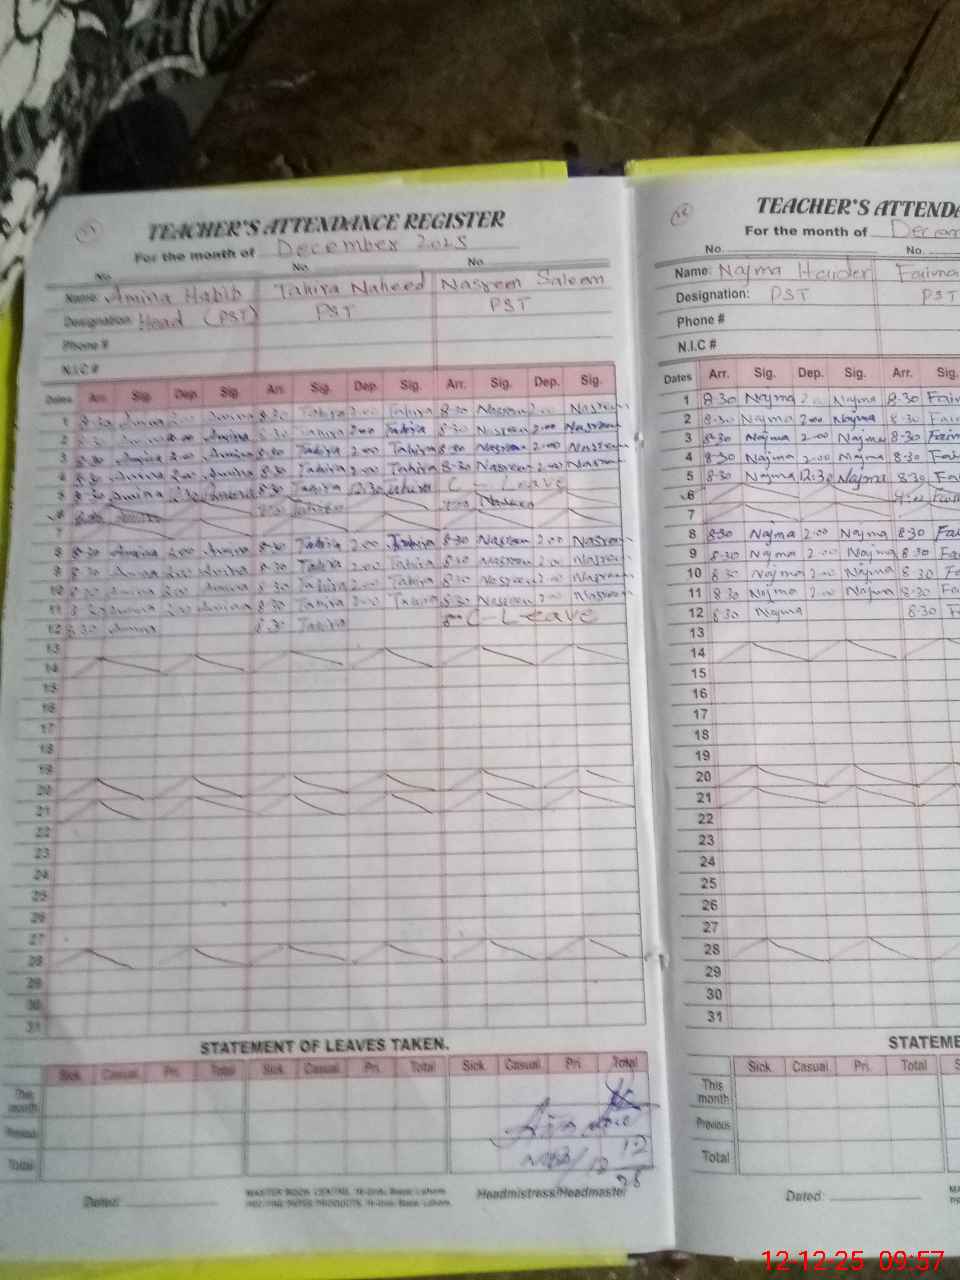 TEACHER'S ATTENDANCE REGISTER
For the month of December 2025
No. No. No.
Name: Amina Habib Tahira Naheed Nasreen Saleem
Designation: Head (PST) PST PST
Phone #
N.I.C #
Dates Arr. Sig. Dep. Sig. Arr. Sig. Dep. Sig. Arr. Sig. Dep. Sig.
1 8:30 Amina 2:00 Amina 8:30 Tahira 2:00 Tahira 8:30 Nasreen 2:00 Nasreen
2 8:30 Amina 2:00 Amina 8:30 Tahira 2:00 Tahira 8:30 Nasreen 2:00 Nasreen
3 8:30 Amina 2:00 Amina 8:30 Tahira 2:00 Tahira 8:30 Nasreen 2:00 Nasreen
4 8:30 Amina 2:00 Amina 8:30 Tahira 2:00 Tahira 8:30 Nasreen 2:00 Nasreen
5 8:30 Amina 12:30 Amina 8:30 Tahira 12:30 Tahira C - Leave
6 Nasreen
7
8 8:30 Amina 2:00 Amina 8:30 Tahira 2:00 Tahira 8:30 Nasreen 2:00 Nasreen
9 8:30 Amina 2:00 Amina 8:30 Tahira 2:00 Tahira 8:30 Nasreen 2:00 Nasreen
10 8:30 Amina 2:00 Amina 8:30 Tahira 2:00 Tahira 8:30 Nasreen 2:00 Nasreen
11 8:30 Amina 2:00 Amina 8:30 Tahira 2:00 Tahira 8:30 Nasreen 2:00 Nasreen
12 8:30 Amina 8:30 Tahira C-Leave
13
14
15
16
17
18
19
20
21
22
23
24
25
26
27
28
29
30
31
STATEMENT OF LEAVES TAKEN.
Sick Casual Pri. Total Sick Casual Pri. Total Sick Casual Pri. Total
This month
Previous
Total
12
Dated: Headmistress/Headmaster
TEACHER'S ATTENDA
For the month of Decem
No. No.
Name: Najma Haider Faima
Designation: PST PST
Phone #
N.I.C #
Dates Arr. Sig. Dep. Sig. Arr. Sig.
1 8:30 Najma 2:00 Najma 8:30 Faim
2 8:30 Najma 2:00 Najma 8:30 Fai
3 8:30 Najma 2:00 Najma 8:30 Faim
4 8:30 Najma 2:00 Najma 8:30 Fai
5 8:30 Najma 12:30 Najma 8:30 Fai
6
7
8 8:30 Najma 2:00 Najma 8:30 Fai
9 8:30 Najma 2:00 Najma 8:30 Fa
10 8:30 Najma 2:00 Najma 8:30 Fa
11 8:30 Najma 2:00 Najma 8:30 Fa
12 8:30 Najma 8:30 F
13
14
15
16
17
18
19
20
21
22
23
24
25
26
27
28
29
30
31
STATEME
Sick Casual Pri. Total S
This month
Previous
Total
Dated:
12-12-25 09:57